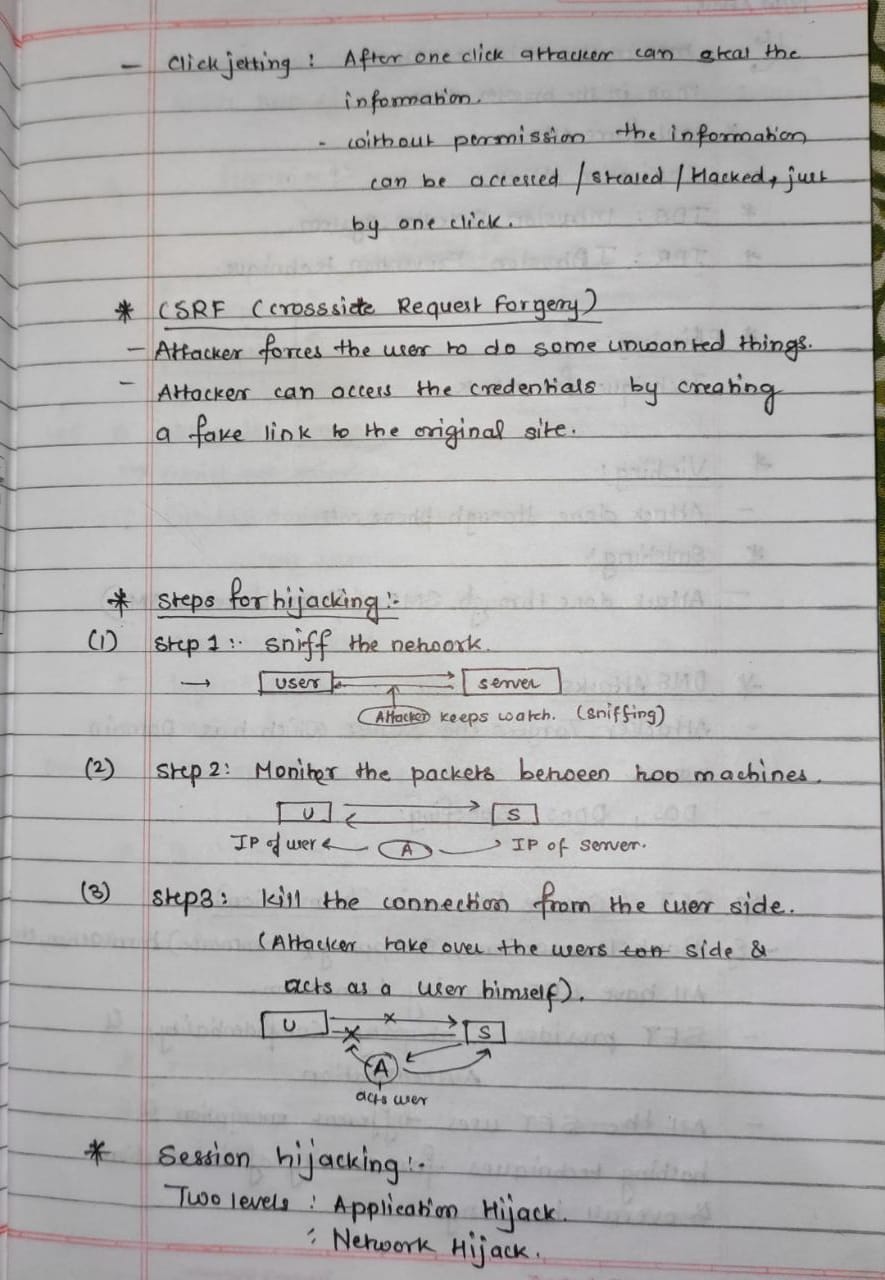 - Clickjetting : After one click attacker can steal the
information.
- without permission the information
can be accessed / stealed / Hacked, just
by one click.
* CSRF (crossside Request Forgery)
- Attacker forces the user to do some unwanted things.
- Attacker can access the credentials by creating
a fake link to the original site.
* Steps for hijacking :-
(1) Step 1 :- sniff the network.
→ user server
Attacker keeps watch. (sniffing)
(2) Step 2 : Moniter the packets between two machines.
U S
IP of user A IP of server.
(3) Step3 : kill the connection from the user side.
(Attacker take over the users con side &
acts as a user himself).
U x S
x
A
acts user
* Session hijacking :-
Two levels : Application Hijack.
: Network Hijack.